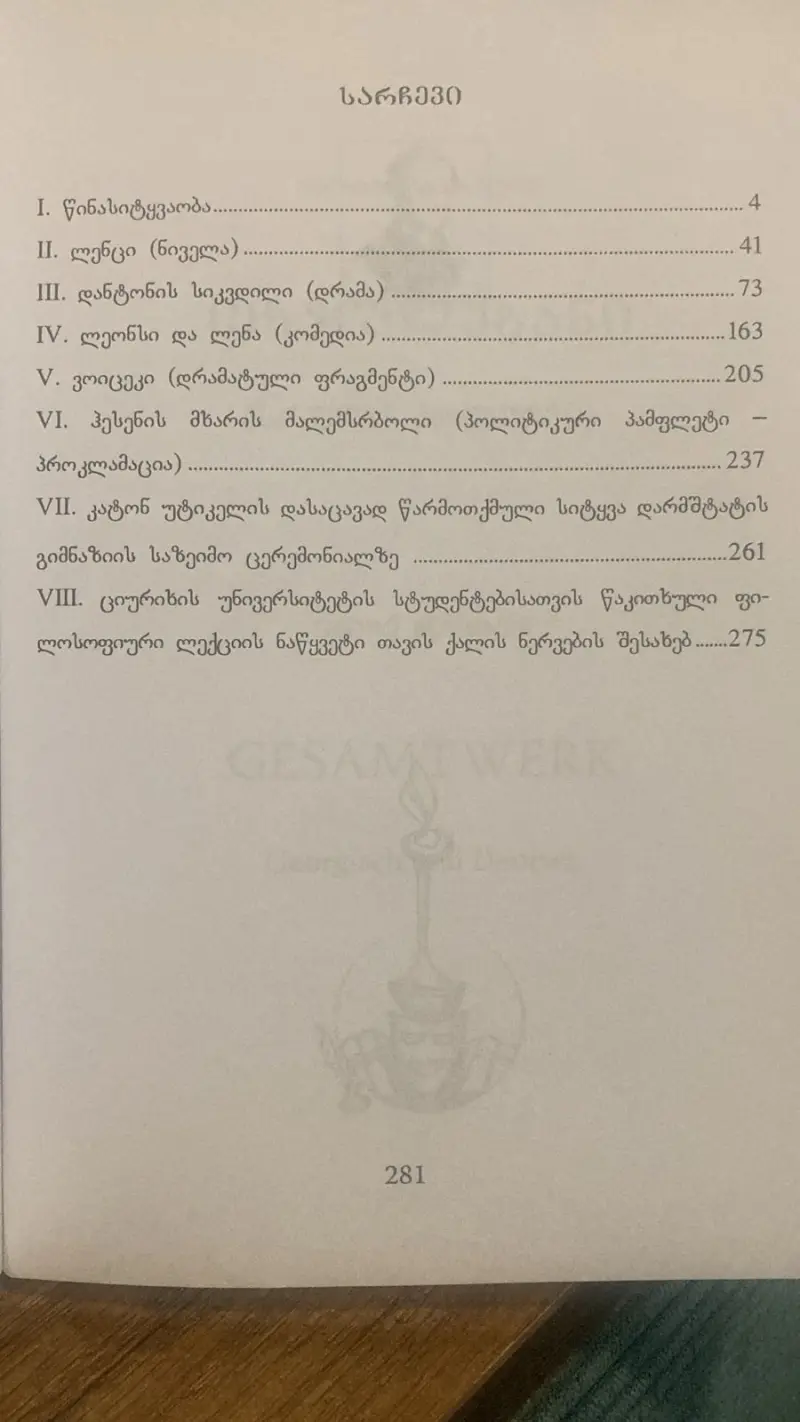 სარჩევი
I. წინასიტყვაობა........................................ 4
II. ლენცი (ნიველა) ........................................ 41
III. დანტონის სიკვდილი (დრამა) ........................................ 73
IV. ლეონსი და ლენა (კომედია) ........................................ 163
V. ვოიცეკი (დრამატული ფრაგმენტი) ........................................ 205
VI. ჰესენის მხარის მალემსრბოლი (პოლიტიკური პამფლეტი –
პროკლამაცია) ........................................ 237
VII. კატონ უტიკელის დასაცავად წარმოთქმული სიტყვა დარმშტატის
გიმნაზიის საზეიმო ცერემონიალზე ........................................261
VIII. ციურიხის უნივერსიტეტის სტუდენტებისათვის წაკითხული ფი-
ლოსოფიური ლექციის ნაწყვეტი თავის ქალის ნერვების შესახებ.......275
GESAMTWERK
281